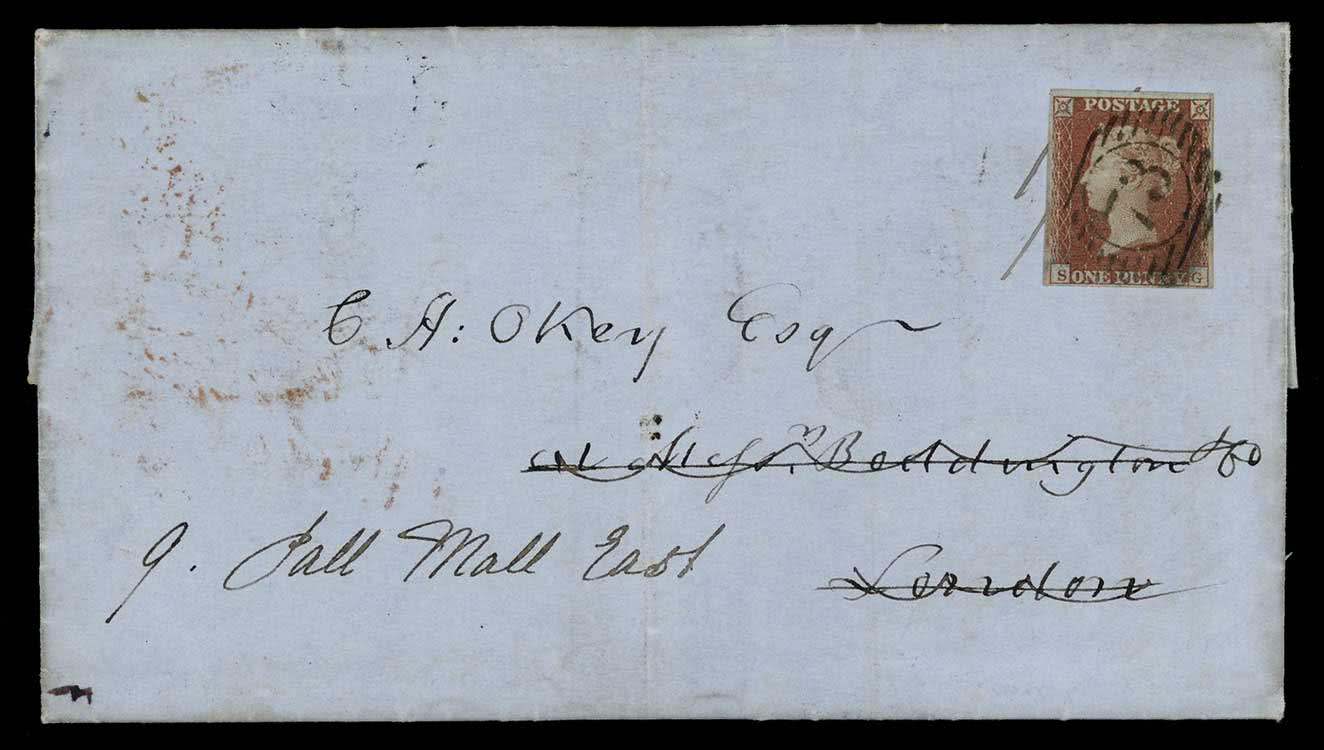 POSTAGE
S ONE PENNY G
C. A: Okey Esqr
at Messrs. Boddington & Co
9. Pall Mall East
London